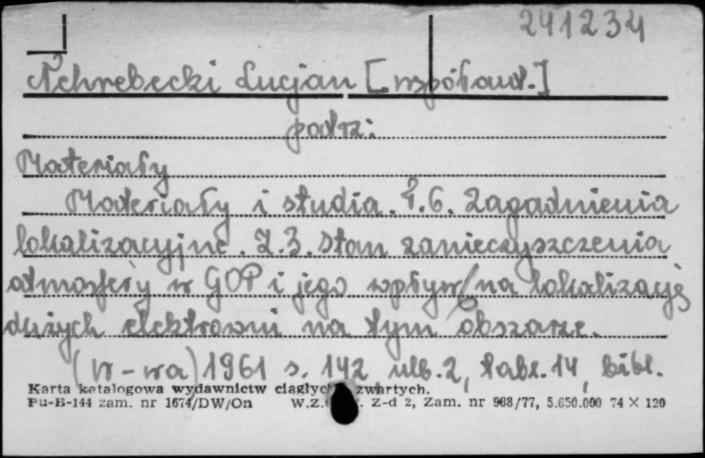 241234
Nehrebecki Lucjan [współaut.]
patrz:
Materiały
Materiały i studia. T.6. Zagadnienia
lokalizacyjne. Z.3. Stan zanieczyszczenia
atmosfery w GOP i jego wpływ na lokalizację
dużych elektrowni na tym obszarze.
(W-wa) 1961 s. 142 nlb. 2, tabl. 14, bibl.
Karta katalogowa wydawnictw ciągłych zwartych.
Pu-B-144 zam. nr 1674/DW/On W.Z. Z-d 2, Zam. nr 968/77, 5.650.000 74 × 120